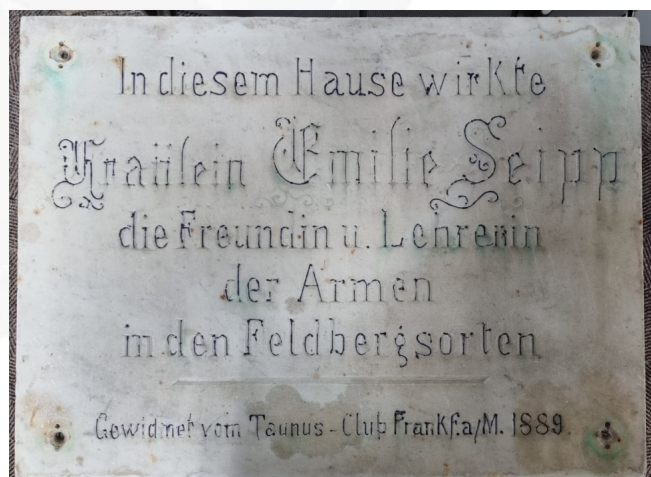 In diesem Hause wirkte
Fräulein Emilie Seipp
die Freundin u. Lehrerin
der Armen
in den Feldbergsorten
Gewidmet vom Taunus-Club Frankf.a/M. 1889.